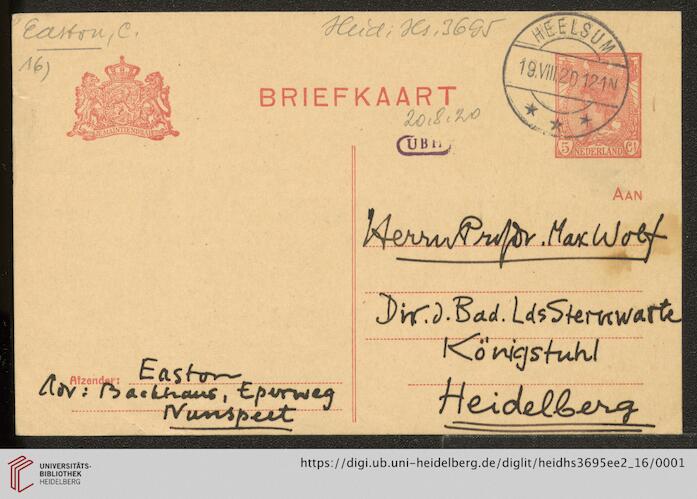 Easton, C.
Heid. Hs. 3695
16)
JE MAINTIENDRAI
BRIEFKAART
20.8.20
UBH
HEELSUM
19.VIII.20 12-1N
5 NEDERLAND Ct
AAN
Herrn Prof Dr. Max Wolf
Dir. d. Bad. Lds Sternwarte
Königstuhl
Heidelberg
Afzender: Easton
Backhaus, Eperweg
Nunspeet
UNIVERSITÄTS-
BIBLIOTHEK
HEIDELBERG
https://digi.ub.uni-heidelberg.de/diglit/heidhs3695ee2_16/0001